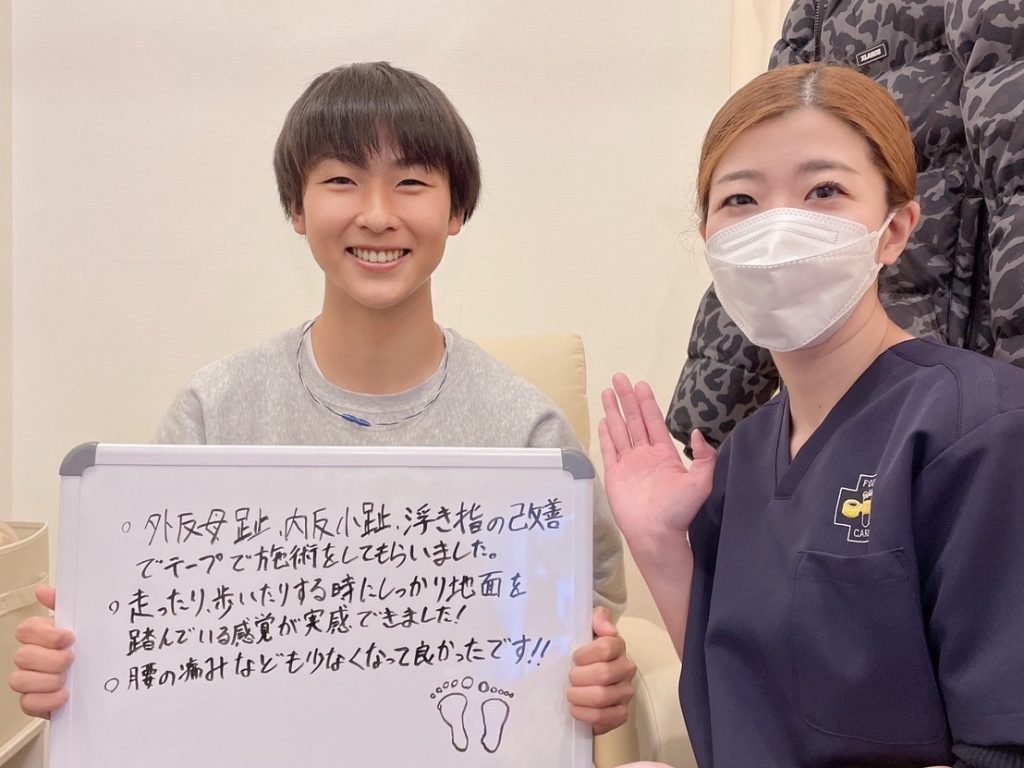 ○ 外反母趾、内反小趾、浮き指の改善
でテープで施術をしてもらいました。
○ 走ったり、歩いたりする時にしっかり地面を
踏んでいる感覚が実感できました!
○ 腰の痛みなども少なくなって良かったです!!